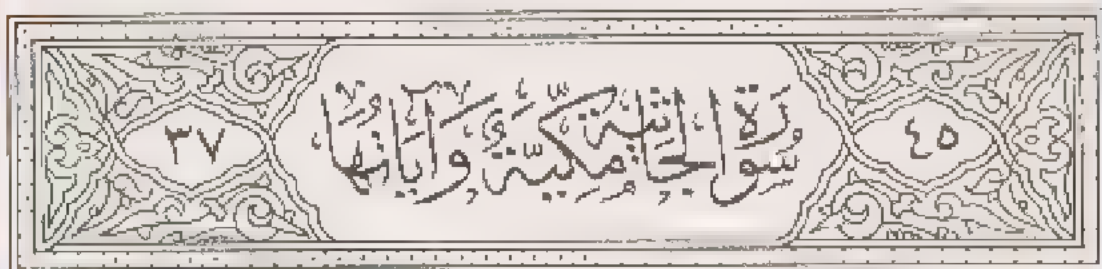 ٤٥
سُورَةُ الجَاثِيَةِ مَكِّيَّة وَآيَاتُهَا ٣٧
٣٧